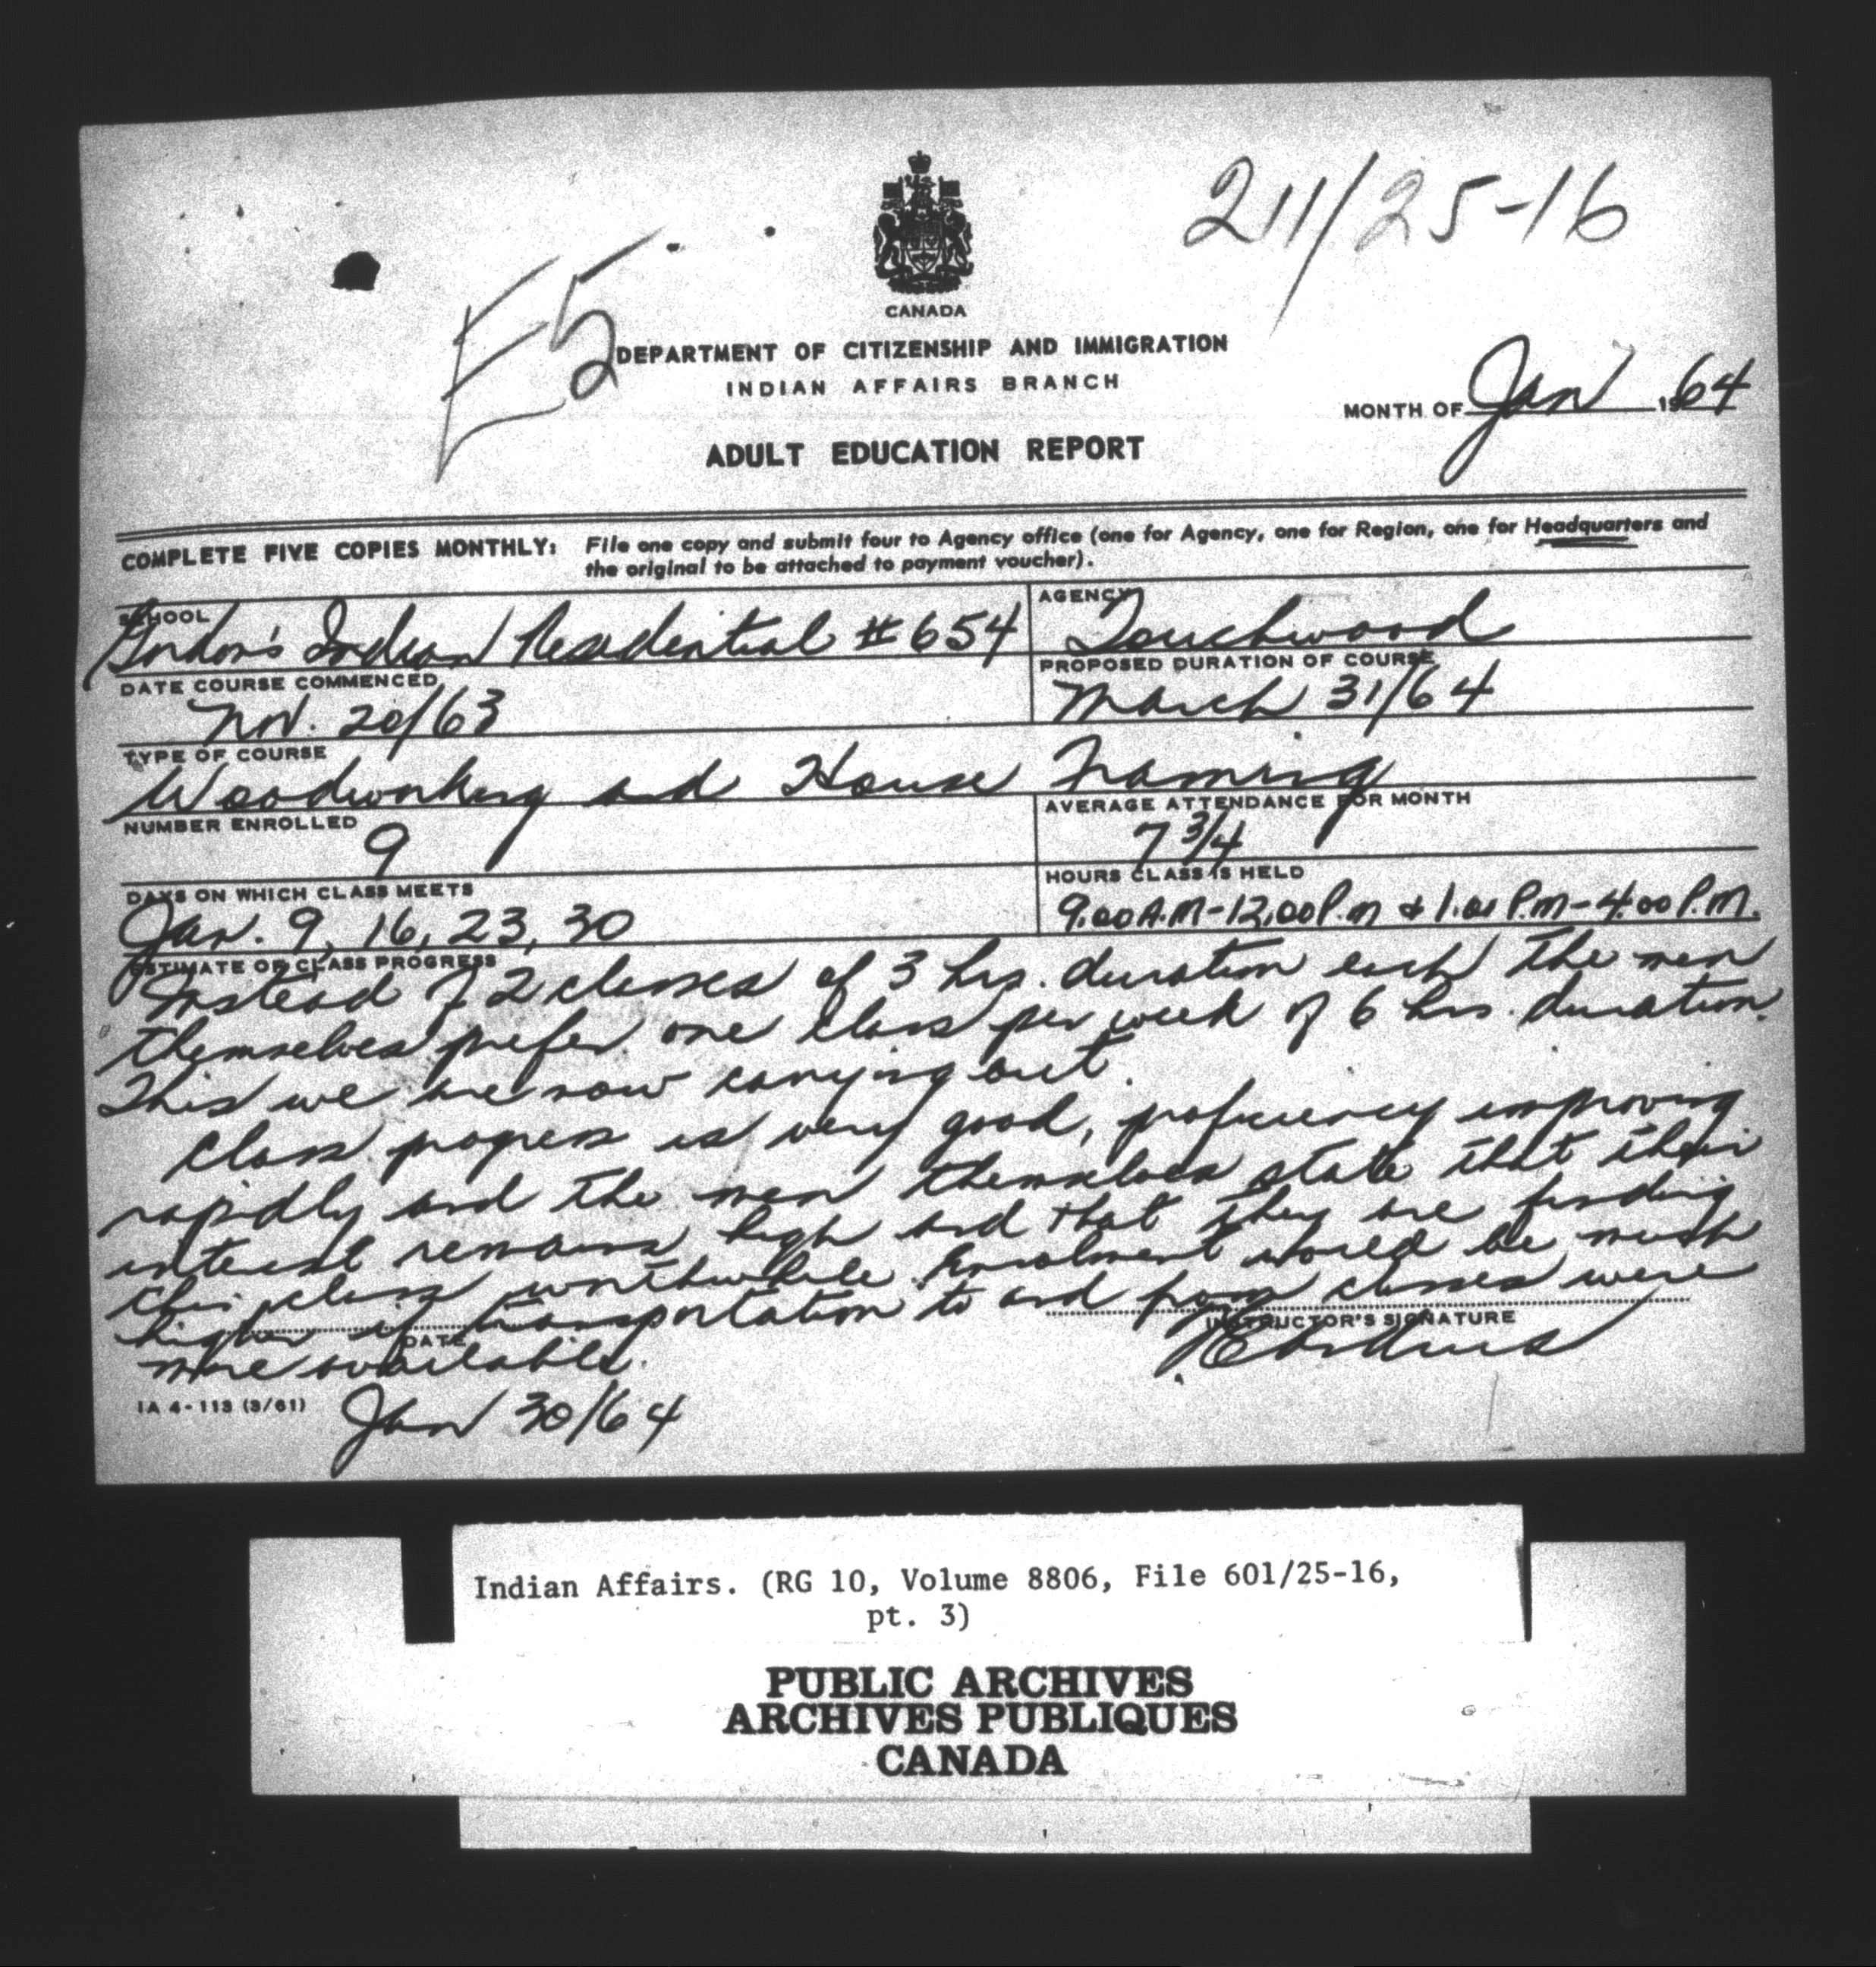 211/25-16
E5
2
CANADA
DEPARTMENT OF CITIZENSHIP AND IMMIGRATION
INDIAN AFFAIRS BRANCH
MONTH OF Jan 1964
ADULT EDUCATION REPORT
COMPLETE FIVE COPIES MONTHLY: File one copy and submit four to Agency office (one for Agency, one for Region, one for Headquarters and
the original to be attached to payment voucher).
SCHOOL
Gordon's Indian Residential #654
AGENCY
Touchwood
DATE COURSE COMMENCED
Nov. 20/63
PROPOSED DURATION OF COURSE
March 31/64
TYPE OF COURSE
Woodworking and House Framing
NUMBER ENROLLED
9
AVERAGE ATTENDANCE FOR MONTH
7 3/4
DAYS ON WHICH CLASS MEETS
Jan. 9, 16, 23, 30
HOURS CLASS IS HELD
9.00 A.M-12.00 P.m & 1.00 P.M-4.00 P.M.
ESTIMATE OF CLASS PROGRESS
Instead of 2 classes of 3 hrs. duration each the men
themselves prefer one class per week of 6 hrs. duration.
This we are now carrying out.
Class progress is very good, proficiency improving
rapidly and the men themselves state that their
interest remains high and that they are finding
this class worthwhile Enrolment would be much
higher if transportation to and from classes were
more available.
DATE
INSTRUCTOR'S SIGNATURE
IA 4-113 (3/61)
Jan 30/64
Indian Affairs. (RG 10, Volume 8806, File 601/25-16,
pt. 3)
PUBLIC ARCHIVES
ARCHIVES PUBLIQUES
CANADA